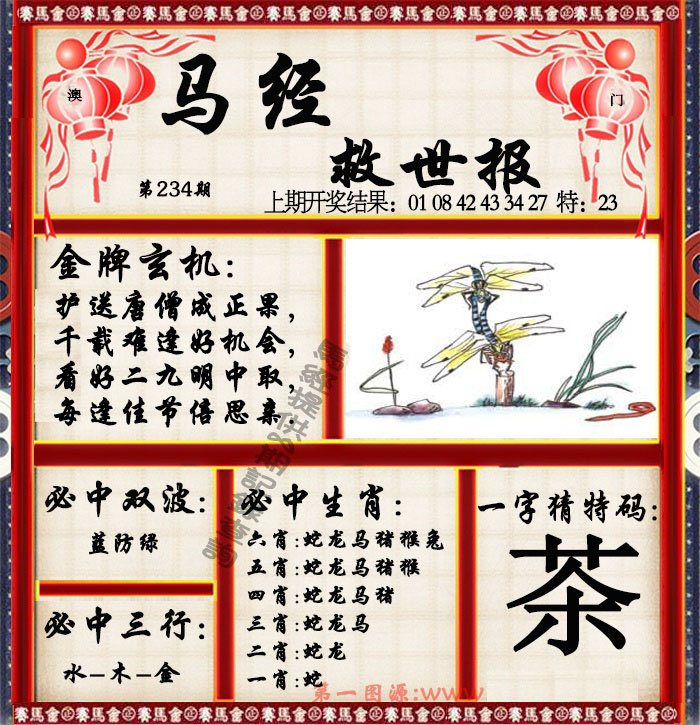 金馬賽金馬賽金馬賽
澳
门
马经
救世报
第234期
上期开奖结果：01 08 42 43 34 27 特：23
金牌玄机：
护送唐僧成正果，
千载难逢好机会，
看好二九明中取，
每逢佳节倍思亲.
必中双波：
蓝防绿
必中三行：
水-木-金
必中生肖：
六肖：蛇龙马猪猴兔
五肖：蛇龙马猪猴
四肖：蛇龙马猪
三肖：蛇龙马
二肖：蛇龙
一肖：蛇
一字猜特码：
茶
第一图源:www